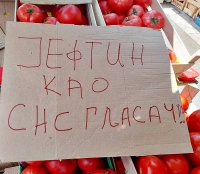 ЈЕФТИН
КАО
СНС ГЛАСАЧ!!